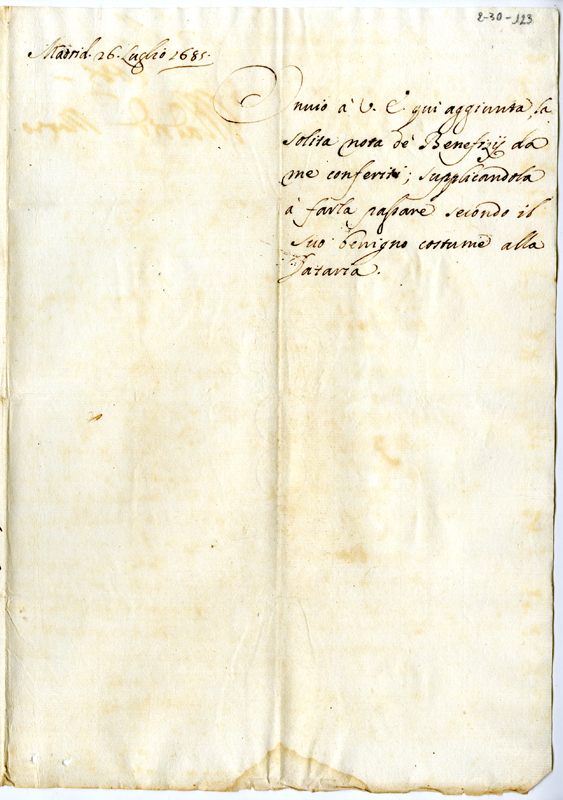 2-30-123
Madrid 26. Luglio 1685.
Inuio à V. E. qui aggiunta, la
solita nota de Benefizij da
me conferiti; supplicandola
à farla passare secondo il
suo benigno costume alla
Dataria.